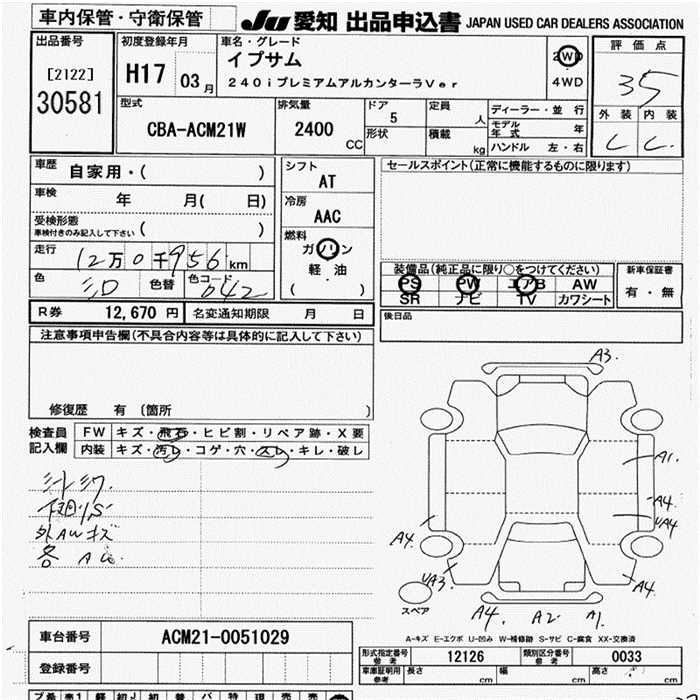 車内保管・守衛保管
JU 愛知 出品申込書 JAPAN USED CAR DEALERS ASSOCIATION
出品番号
[2122]
30581
初度登録年月
H17 03月
車名・グレード
イプサム
240iプレミアムアルカンターラVer
2WD
4WD
評価点
35
外装 内装
C C
型式
CBA-ACM21W
排気量
2400 CC
ドア
5
形状
定員
人
積載
kg
ディーラー・並行
モデル年式 年
ハンドル 左・右
車歴 自家用・( )
車検 年 月( 日)
受検形態
車検付きのみ記入して下さい ( )
走行 12万0千956km
色 シロ 色替 色コード 042
シフト
AT
冷房
AAC
燃料
ガソリン
軽・油
( )
セールスポイント(正常に機能するものに限ります)
装備品(純正品に限り○をつけてください)
PS PW エアB AW
SR ナビ TV カワシート
新車保証書
有・無
R券 12,670円 名変通知期限 月 日
後日品
注意事項申告欄(不具合内容等は具体的に記入して下さい)
修復歴 有 (箇所 )
検査員記入欄
FW キズ・飛石・ヒビ割・リペア跡・X要
内装 キズ・汚れ・コゲ・穴・スレ・キレ・破し
外AWキズ
各 AU
A3.
A1.
A4
UA4
A4.
UA3
A4.
スペア
A4. A2 A1.
A-キズ E-エクボ U-凹み W-補修跡 S-サビ C-腐食 XX-交換済
車台番号 ACM21-0051029
登録番号
形式指定番号 参考 12126 類別区分番号 参考 0033
車庫証明用 参考 長さ cm 幅 cm 高さ cm